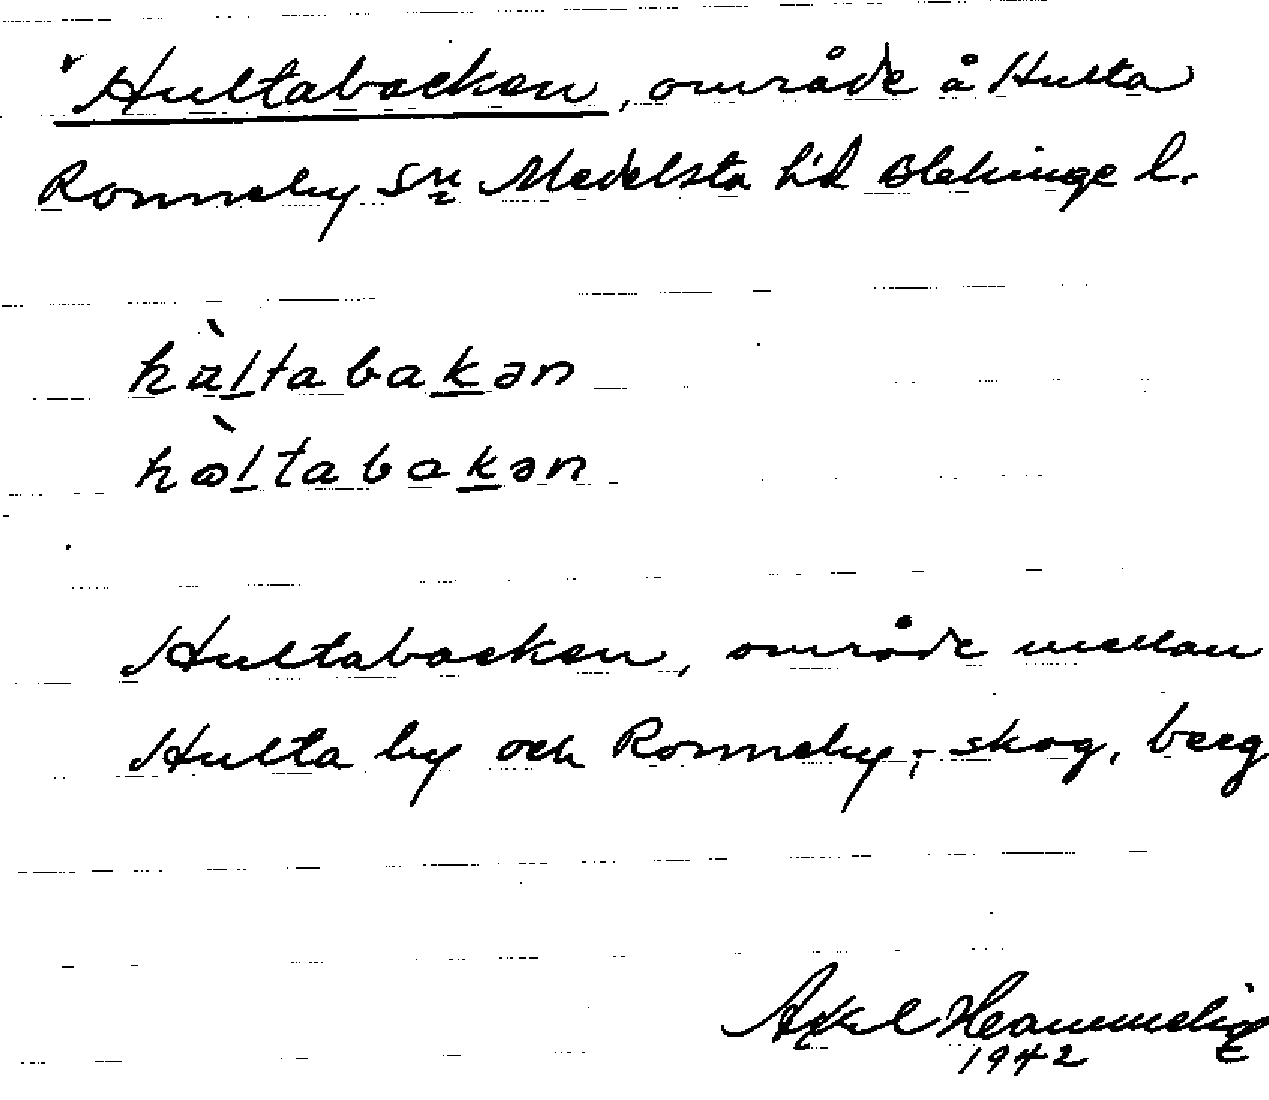 Hultabacken, område å Hulta
Ronneby sn Medelsta h'd Blekinge l.
hùltabakən
hòltabakən
Hultabacken, område mellan
Hulta by och Ronneby; skog, berg
Axel
1942